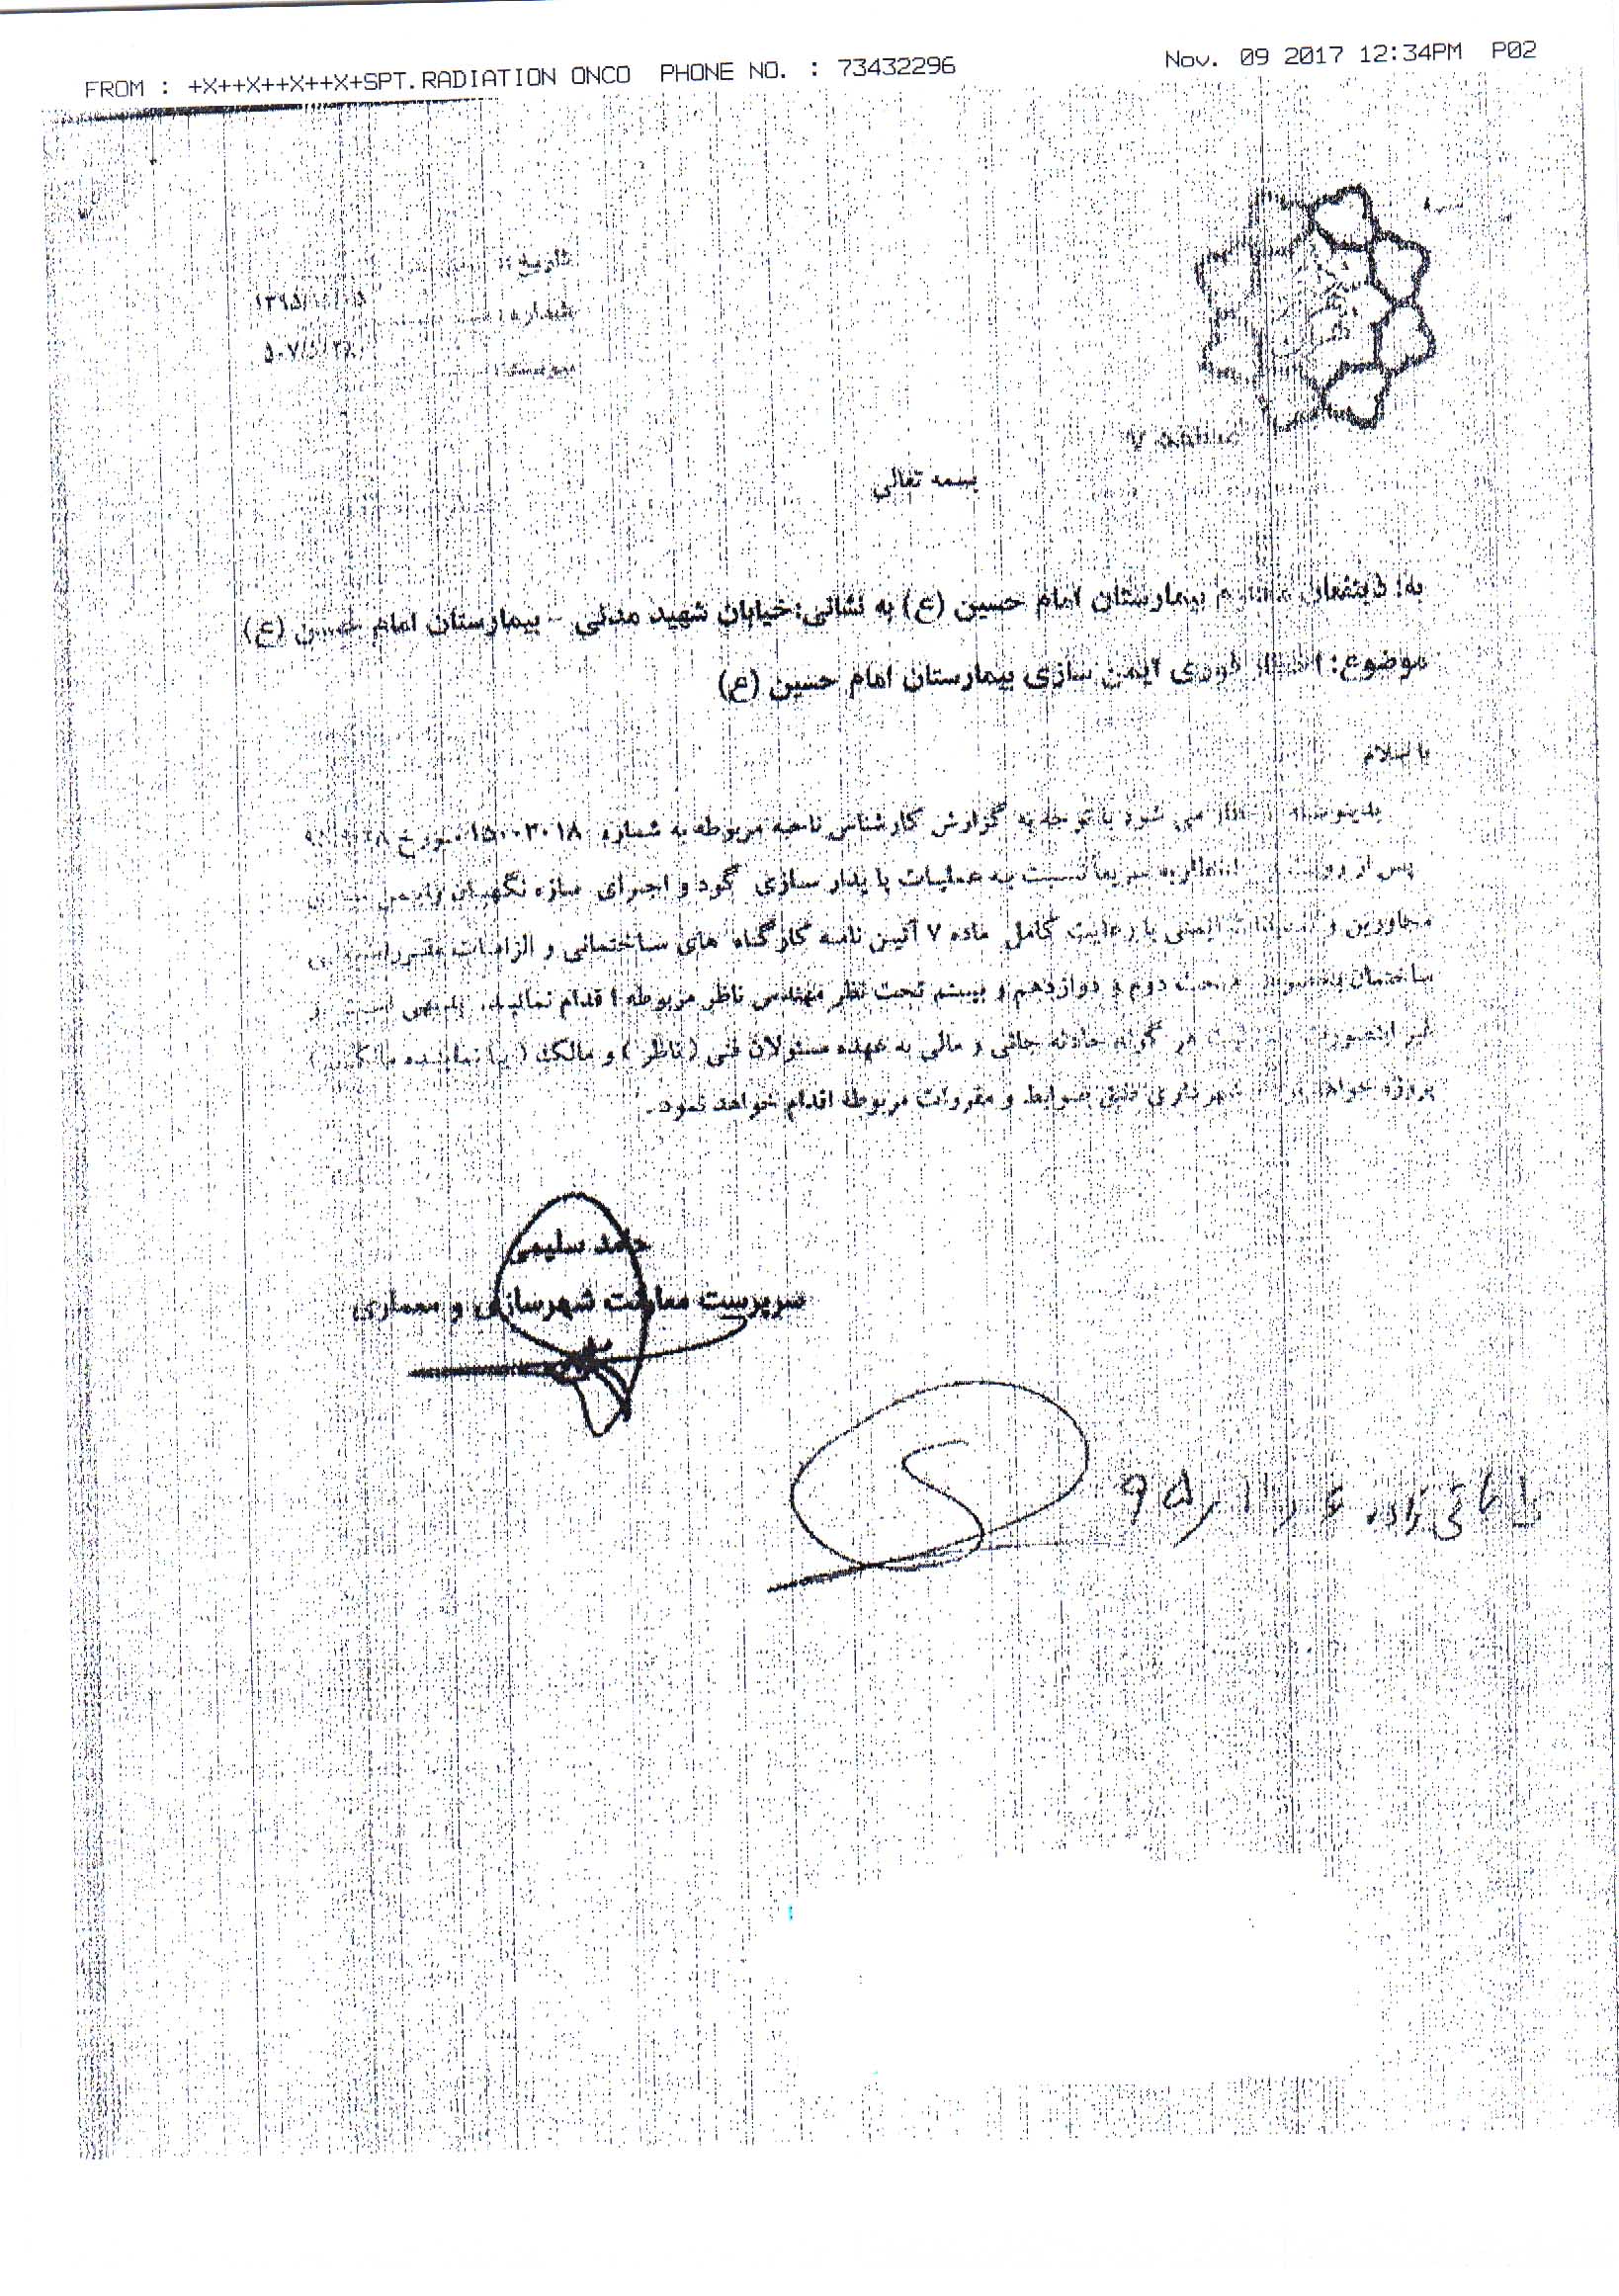 FROM : +X++X++X++X+SPT.RADIATION ONCO PHONE NO. : 73432296
Nov. 09 2017 12:34PM P02
تاریخ:
شماره:
پیوست:
بسمه تعالی
به: ذینفعان محترم بیمارستان امام حسین (ع) به نشانی: خیابان شهید مدنی - بیمارستان امام حسین (ع)
موضوع: اخطار فوری ایمن سازی بیمارستان امام حسین (ع)
با سلام
می شود با توجه به گزارش کارشناس ناحیه مربوطه به شماره ۱۵۰۰۳۰۱۸ مورخ
پس از رویت اخطاریه سریعاً نسبت به عملیات پایدار سازی گود و اجرای سازه نگهبان و ایمن سازی
مجاورین و ایمنی با رعایت کامل ماده ۷ آئین نامه کارگاه های ساختمانی و الزامات مقررات ملی
ساختمان مبحث دوم و دوازدهم و بیستم تحت نظر مهندس ناظر مربوطه اقدام نمائید. بدیهی است در
غیر اینصورت هر گونه حادثه جانی و مالی به عهده مسئولان فنی (ناظر) و مالک (یا نماینده مالکین)
پروژه خواهد شهرداری طبق ضوابط و مقررات مربوطه اقدام خواهد نمود.
حامد سلیمی
سرپرست معاونت شهرسازی و معماری